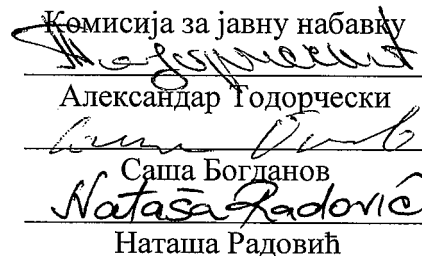 Комисија за јавну набавку
Александар Тодорчески
Саша Богданов
Nataša Radović
Наташа Радовић